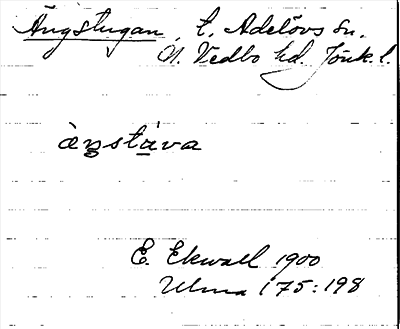 Ängstugan, t. Adelövs sn.
N. Vedbo hd. Jönk. l.
àŋstàva
E. Ekwall 1900
Ulma 175:198